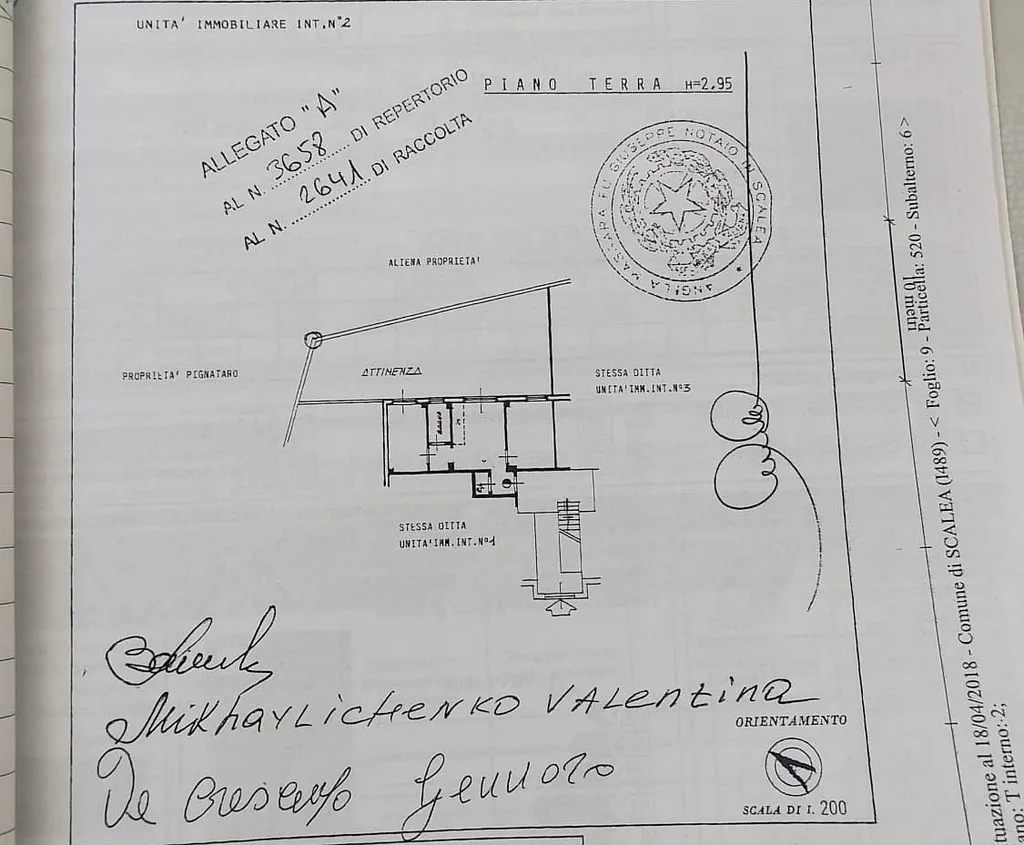 UNITA' IMMOBILIARE INT.N°2
PIANO TERRA H=2.95
ALLEGATO "A"
AL N. 3658 DI REPERTORIO
AL N. 2641 DI RACCOLTA
GIUSEPPE NOTAIO IN SCALEA
ALIENA PROPRIETA'
PROPRIETA' PIGNATARO
ATTINENZA
STESSA DITTA
UNITA'IMM.INT.N°3
STESSA DITTA
UNITA'IMM.INT.N°1
MIKHAYLICHENKO VALENTINA
De Crescenzo Gennaro
ORIENTAMENTO
SCALA DI 1. 200
10 metri
tuazione al 18/04/2018 - Comune di SCALEA (I489) - < Foglio: 9 - Particella: 520 - Subalterno: 6 >
ano: T interno: 2;